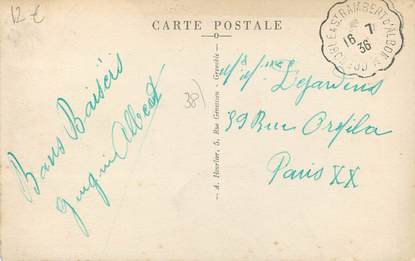 12 €
CARTE POSTALE
GRENOBLE A ST RAMBERT D'ALBON
16-7
36
38)
Bons Baisers
Albert
A. Hourlier, 5, Rue Génissieu - Grenoble
Mr Mme
Dejardins
39 Rue Orfila
Paris XX